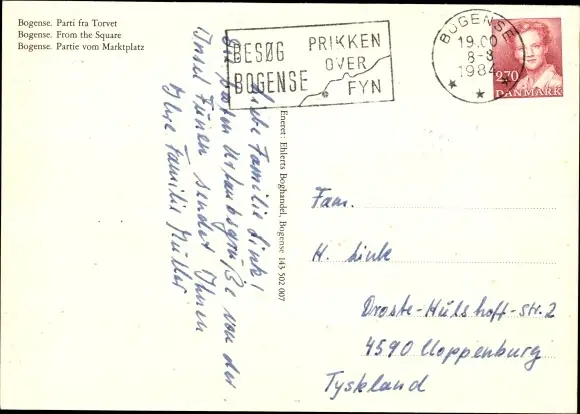 Bogense. Parti fra Torvet
Bogense. From the Square
Bogense. Partie vom Marktplatz
BESØG PRIKKEN
BOGENSE OVER
FYN
BOGENSE
19.00
8-8
1984
2.70
DANMARK
Liebe Familie Link!
Die besten Urlaubsgrüße von der
Insel Fünen sendet Ihnen
Ihre Familie Müller
Eneret: Ehlerts Boghandel, Bogense 143 502 007
Fam.
H. Link
Droste-Hülshoff-Str. 2
4590 Cloppenburg
Tyskland